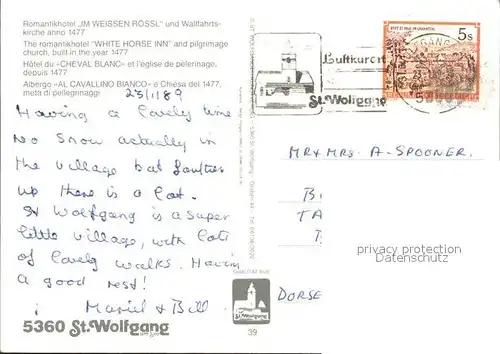 Romantikhotel „IM WEISSEN RÖSSL" und Wallfahrts-
kirche anno 1477
The romantikhotel "WHITE HORSE INN" and pilgrimage
church, built in the year 1477
Hôtel du «CHEVAL BLANC» et l'église de pèlerinage,
depuis 1477
Albergo «AL CAVALLINO BIANCO» e Chiesa del 1477,
meta di pellegrinaggi
23/1/89
Having a lovely time
No snow actually in
the village but further
up there is a lot.
St Wolfgang is a super
little village, with lots
of lovely walks. Having
a good rest!
Muriel & Bill
5360 St. Wolfgang
Luftkurort
St. Wolfgang
5s
MR & MRS. A. SPOONER.
B
TA
DORSE
privacy protection
Datenschutz
St. Wolfgang
39